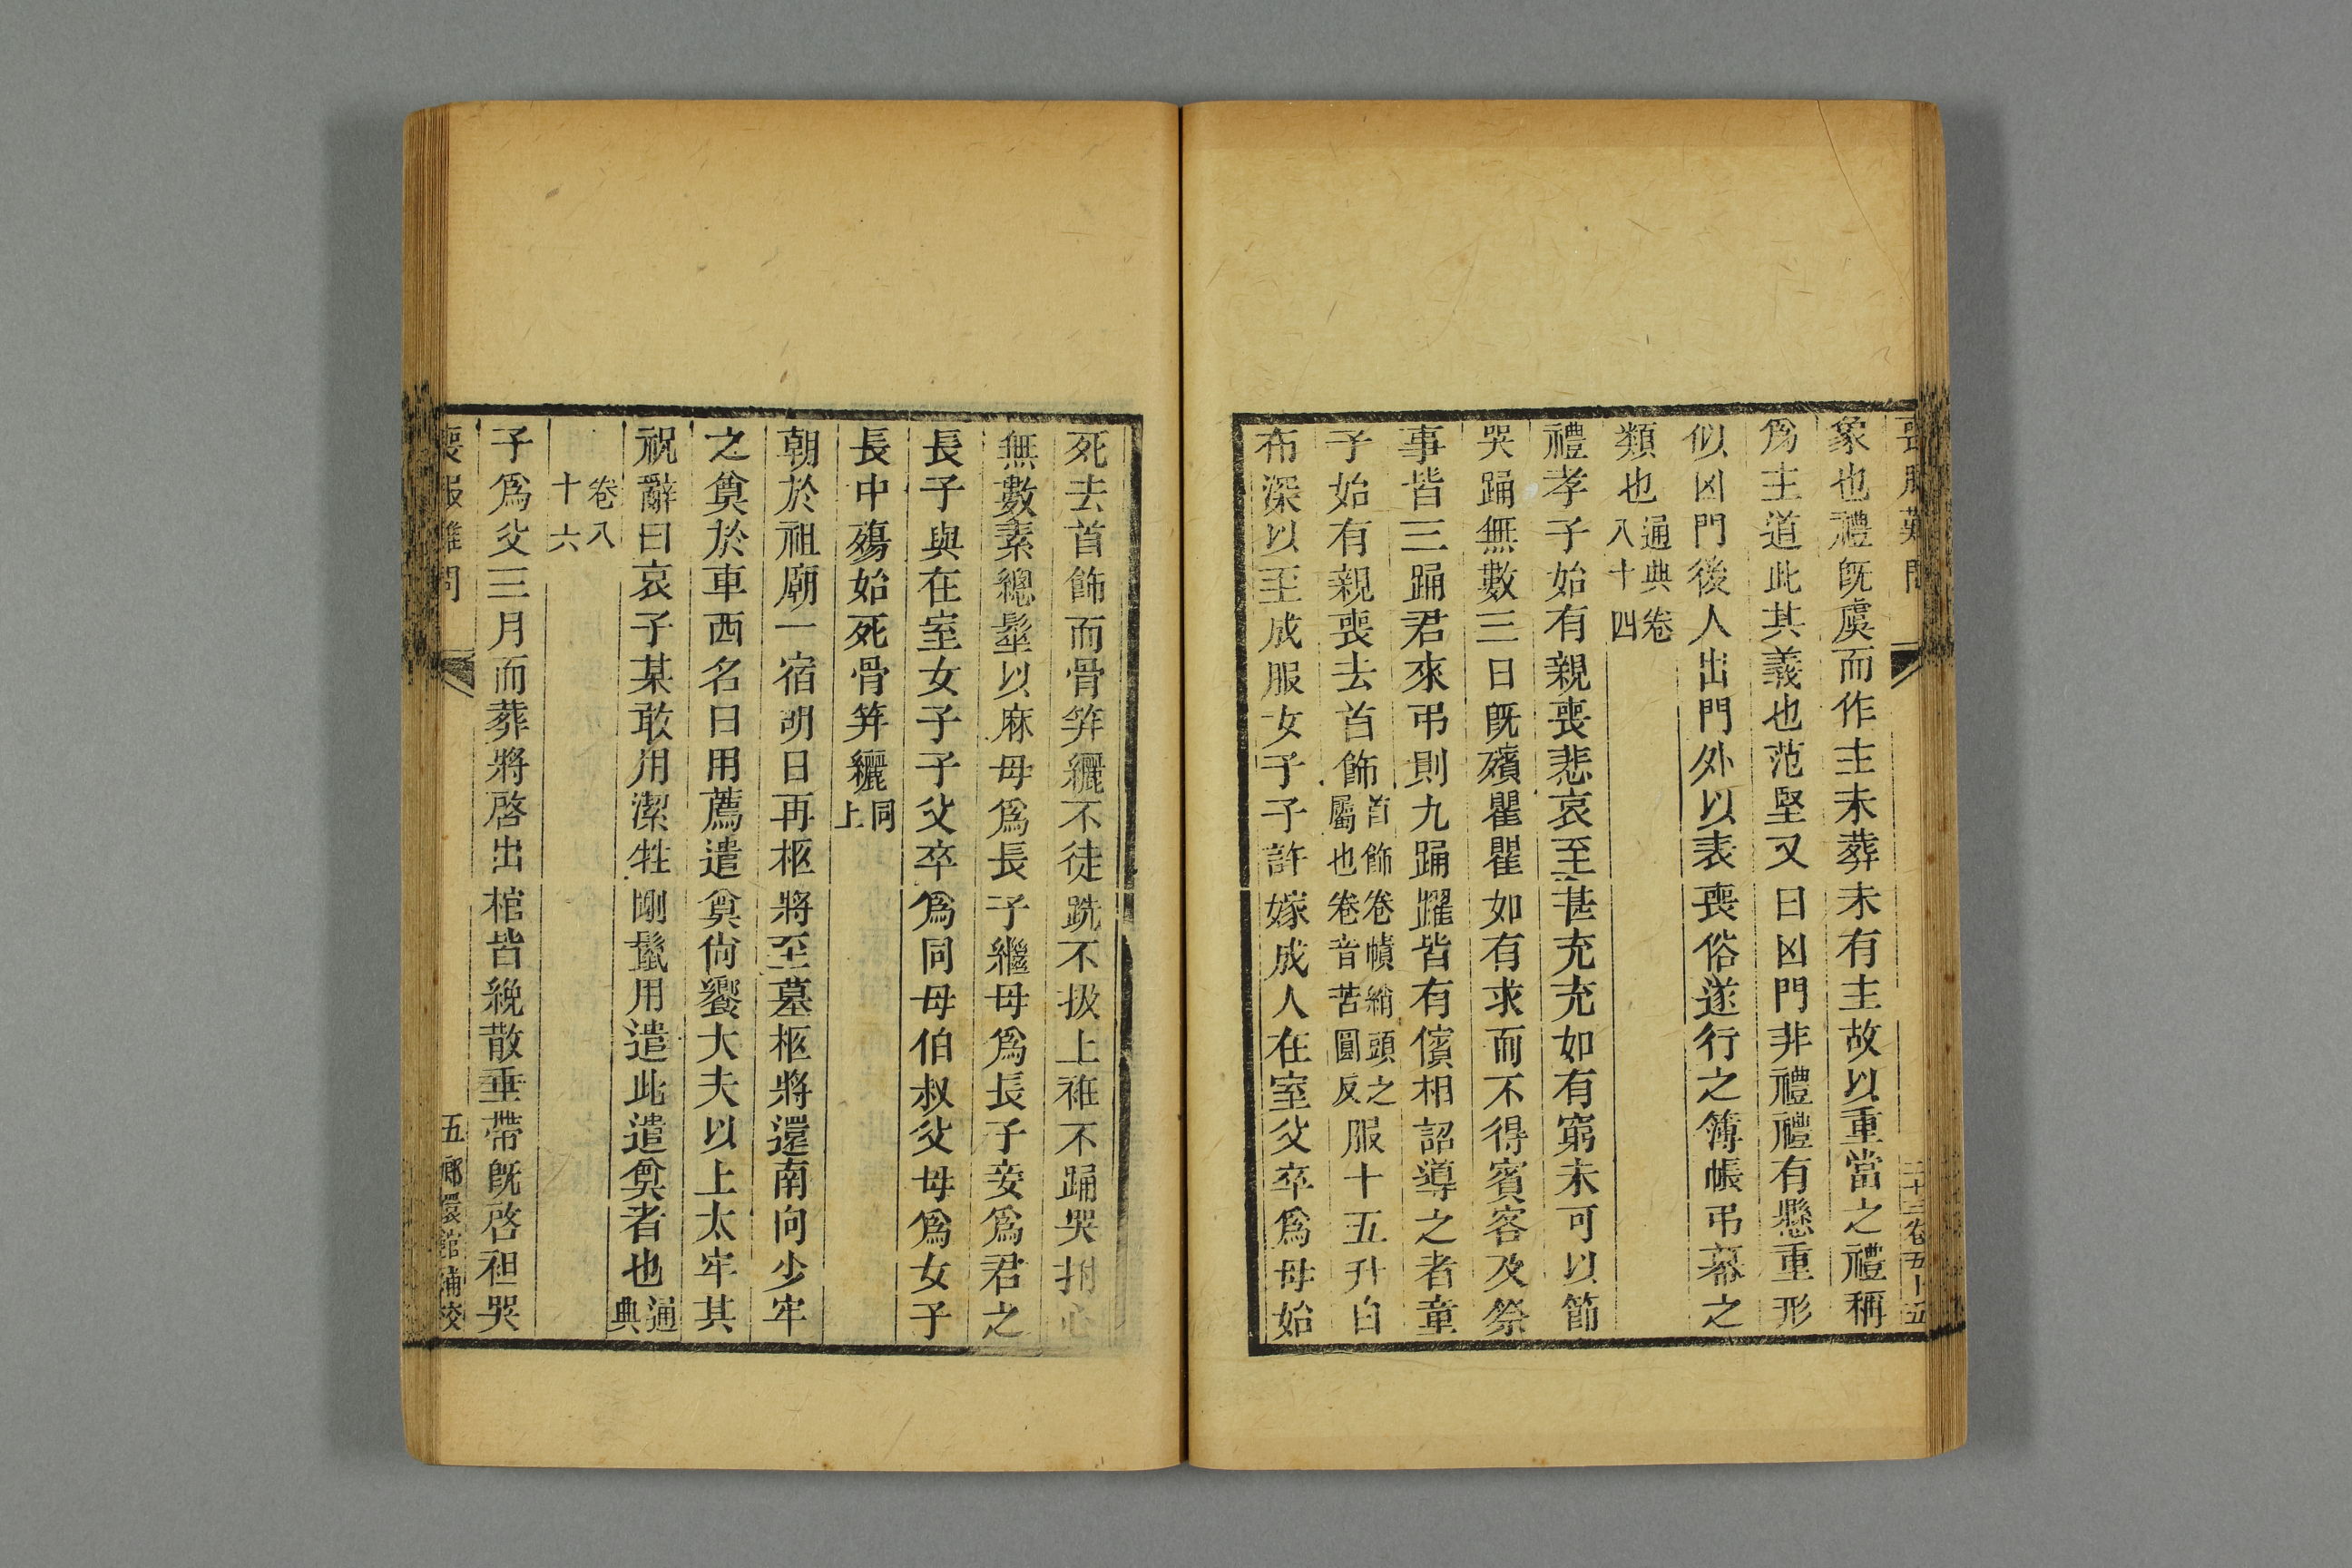 喪服難問
二十三卷五十五
象也禮旣虞而作主未葬未有主故以重當之禮稱
爲主道此其義也范堅又曰凶門非禮禮有懸重形
似凶門後人出門外以表喪俗遂行之簿帳弔幕之
類也通典卷八十四
禮孝子始有親喪悲哀至甚充充如有窮未可以節
哭踊無數三日旣殯瞿瞿如有求而不得賓客及祭
事皆三踊君來弔則九踊躍皆有儐相詔導之者童
子始有親喪去首飾首飾卷幘綃頭之屬也卷音苦圓反服十五升白
布深以至成服女子子許嫁成人在室父卒爲母始
死去首飾而骨笄纚不徒跣不扱上衽不踊哭拊心
無數素總髽以麻母爲長子繼母爲長子妾爲君之
長子與在室女子子父卒爲同母伯叔父母爲女子
長中殤始死骨笄纚同上
朝於祖廟一宿明日再柩將至墓柩將還南向少牢
之奠於車西名曰用薦遣奠尙饗大夫以上太牢其
祝辭曰哀子某敢用潔牲剛鬣用遣此遣奠者也通典
卷八十六
子爲父三月而葬將啓出棺皆絻散垂帶旣啓袒哭
喪服難問
五 鄉嬛館補校